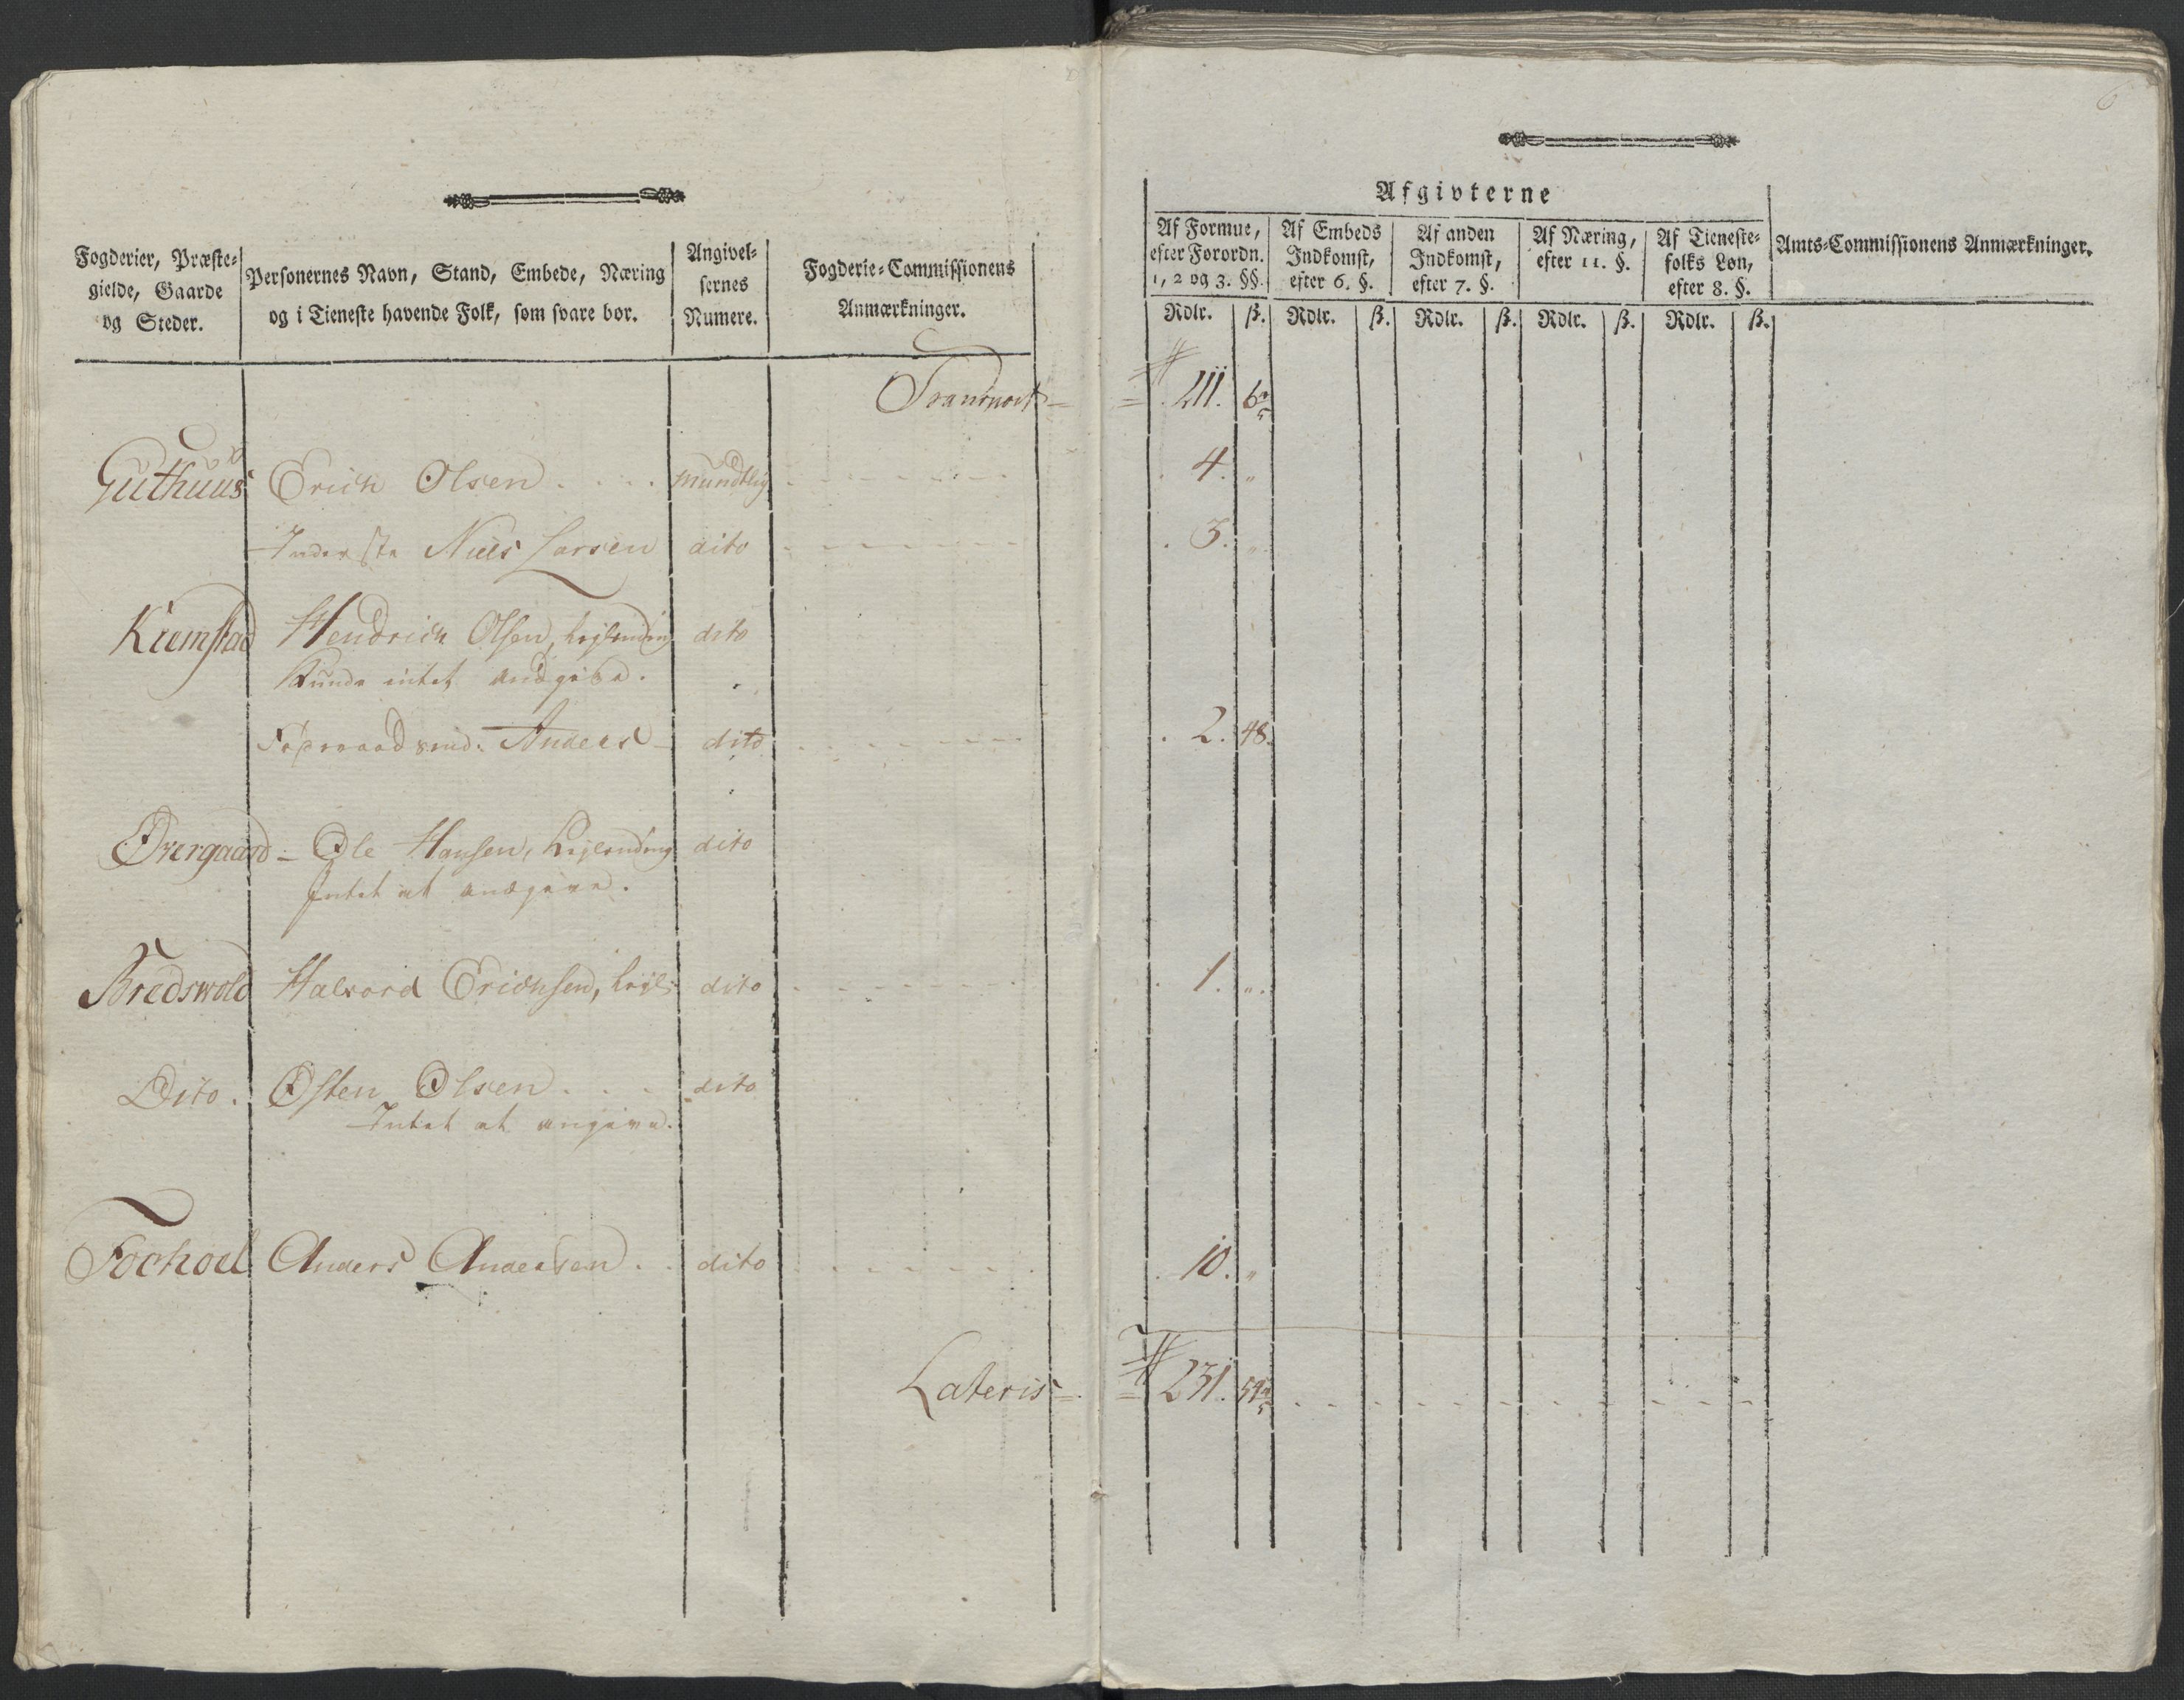 6
Fogderier, Præste-
gielde, Gaarde
og Steder.
Personernes Navn, Stand, Embede, Næring
og i Tieneste havende Folk, som svare bør.
Angivel-
sernes
Numere.
Fogderie-Commissionens
Anmærkninger.
Afgivterne
Af Formue,
efter Forordn.
1, 2 og 3. §§.
Af Embeds
Indkomst,
efter 6. §.
Af anden
Indkomst,
efter 7. §.
Af Næring,
efter 11. §.
Af Tieneste-
folks Løn,
efter 8. §.
Amts-Commissionens Anmærkninger.
Rdlr. ß. Rdlr. ß. Rdlr. ß. Rdlr. ß. Rdlr. ß.
Transport 211. 6
Guthuus Erich Olsen .... mundtlig 4. "
Inderste Niels Larsen dito 3. "
Kiemstad Hendrich Olsen, leylending dito
kunde intet andgive.
Føderaadsmd: Anders dito 2. 48.
Øvergaard - Ole Hansen, Leylending dito
Intet at andgive.
Bredswold Halvord Erichsen, leyl: dito 1. "
Dito. Østen Olsen .... dito
Intet at angive.
Fochoel Anders Andersen .. dito 10. "
Lateris 231. 54